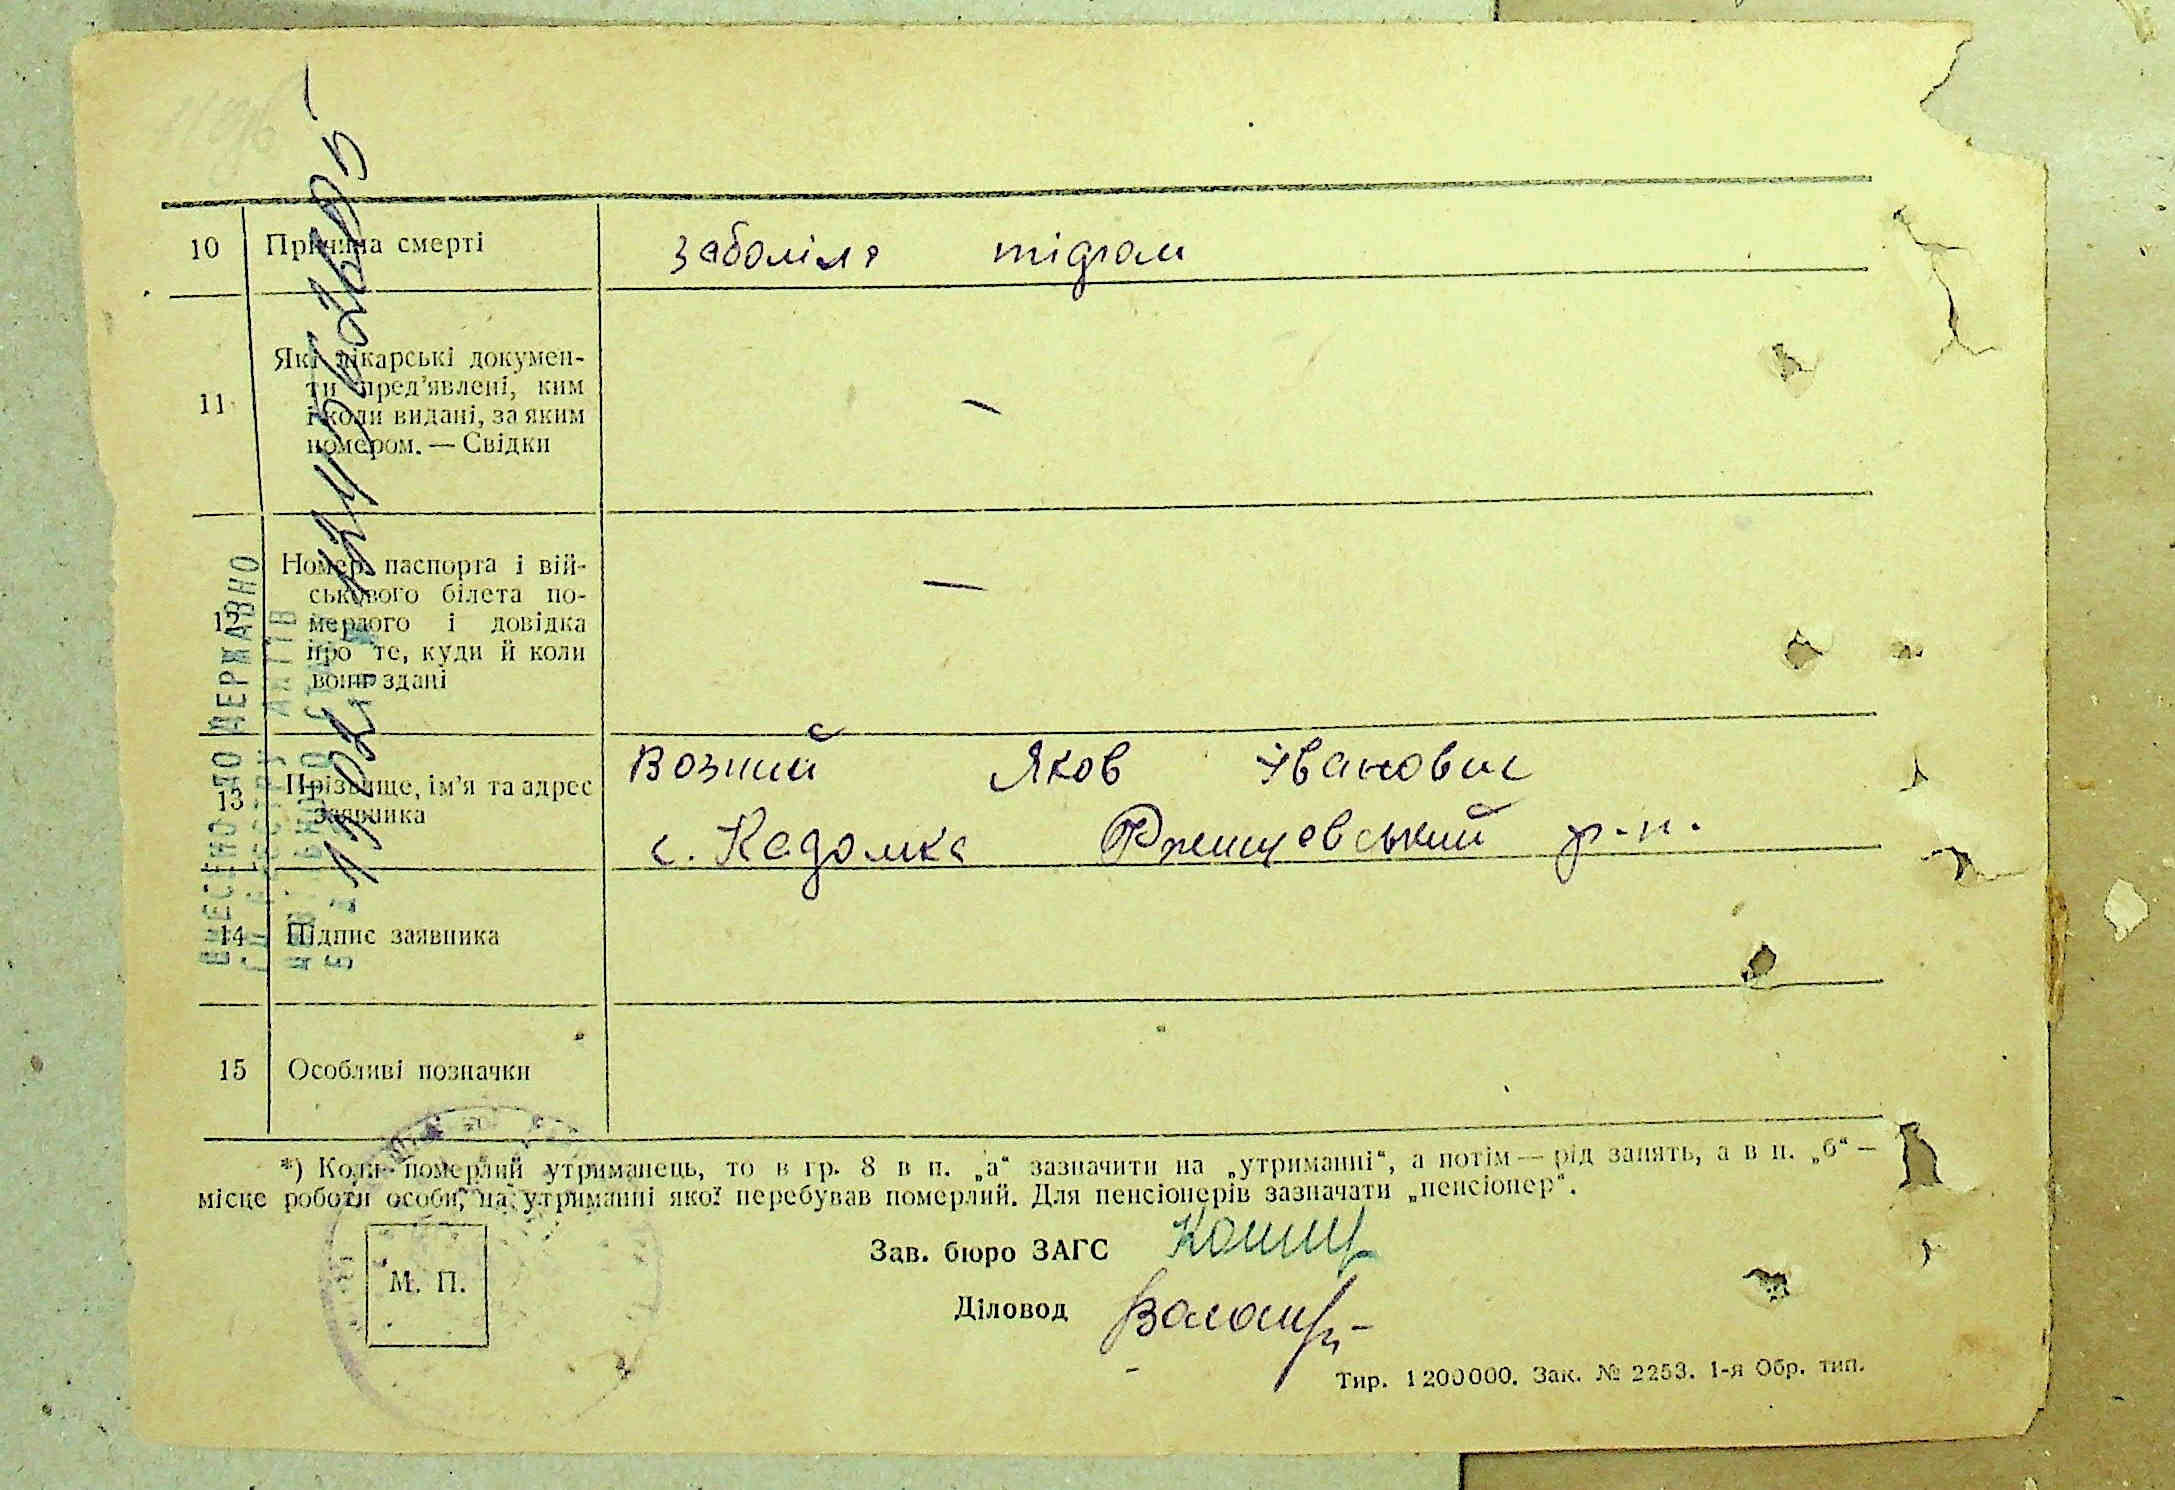 10 Причина смерті
заболіла тідгом
11 Які лікарські докумен-
ти пред’явлені, ким
і коли видані, за яким
номером. — Свідки
—
12 Номер паспорта і вій-
ськового білета по-
мерлого і довідка
про те, куди й коли
вони здані
—
13 Прізвище, ім’я та адрес
заявника
Возний Яков Іванович
с. Кадомка Ржищевський р-н.
14 Підпис заявника
15 Особливі позначки
*) Коли померлий утриманець, то в гр. 8 в п. „а“ зазначити на „утриманні“, а потім — рід занять, а в п. „б“ —
місце роботи особи, на утриманні якої перебував померлий. Для пенсіонерів зазначати „пенсіонер“.
Зав. бюро ЗАГС
М. П.
Діловод
Тир. 1200000. Зак. № 2253. 1-я Обр. тип.
ВНЕСЕНО ДО ДЕРЖАВНО